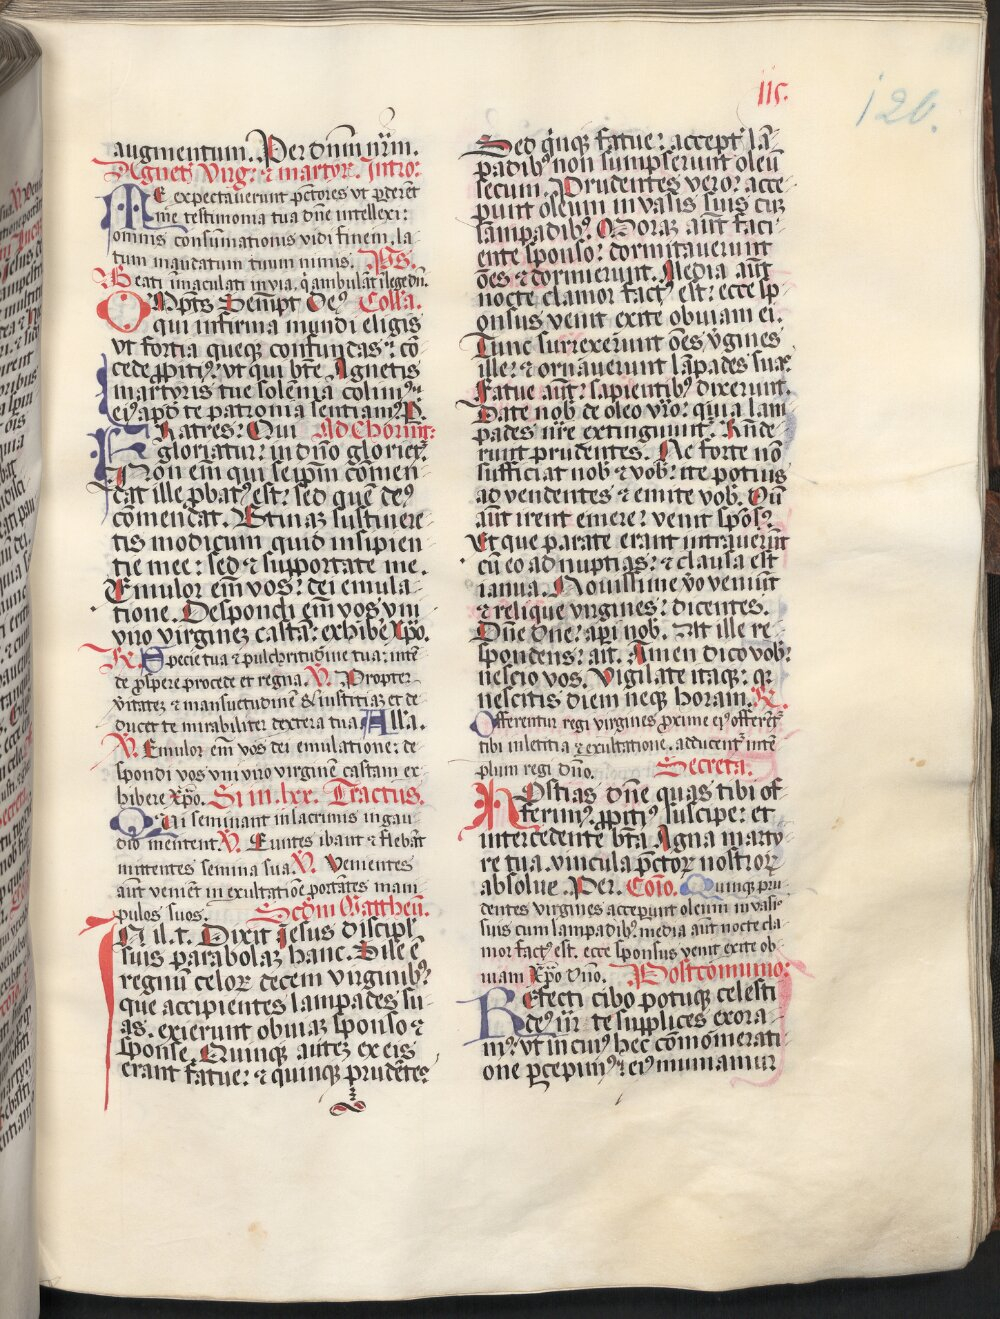 115.
126.
augmentum. Per dnm nrm.
Agnetz virg: ⁊ martyr. Intro:
ME expectaverunt pctores vt pderēt
me testimonia tua dne intellexi:
omnis consumationis vidi finem, la-
tum mandatum tuum nimis. Ps.
Beati imaculati in via, q ambulāt i lege dn.
OMpts Sempt De9 Coll'a.
qui infirma mundi eligis
vt fortia queqꝫ confundas: cō
cede ppiti9: vt qui bte Agnetis
martyris tue solēnia colim9:
ei9 apd te patronia sentiam9. P.
FRatres: Qui Ad Chorint:
gloriatur: in dno glorietꝛ.
Non em qui seipm cōmen-
dat ille pbat9 est: sed quē de9
cōmendat. Utinaꝫ sustinere-
tis modicum quid insipien
tie mee: sed ⁊ supportate me.
Emulor em vos: dei emula-
tione. Despondi em vos vni
viro virgineꝫ castā: exhibē Xpo.
Gr. Specie tua ⁊ pulchritudine tua: intē-
de prospere procede et regna. V. Propter
vitateꝫ ⁊ mansuetudinē & iustitiaꝫ et de-
ducet te mirabiliter dextera tua Alla.
V. Emulor em vos dei emulatione: de-
spondi vos vni viro virginē castam ex-
hibere Xpo. Si in. lxx. Tractus.
Qui seminant in lacrimis in gau-
dio metent. V. Euntes ibant ⁊ flebāt
mittentes semina sua. V. Venientes
aūt veniēt in exultatioē portātes mani-
pulos suos. Scdm Mattheū.
IN il. t. Dixit Jesus discipl'
suis parabolaꝫ hanc. Sile ē
regnū celoꝝ decem virginib9:
que accipientes lampades su-
as. exierunt obviaꝫ sponso ⁊
sponse. Quinqꝫ auteꝫ ex eis
erant fatue: ⁊ quinqꝫ prudētes:
Sed qinqꝫ fatue: accept' lā-
padib9 non sumpserunt oleū
secum. Prudentes vero: acce-
perunt oleum in vasis suis cū
lampadib9. Moraꝫ aūt faci-
ente sponso: dormitaverunt
oēs ⁊ dormierunt. Media aūt
nocte clamor fact9 est: ecce sp
onsus venit exite obviam ei.
Tunc surrexerunt oēs vgines
ille: ⁊ ornaverunt lāpades suas
Fatue aūt: sapientib9 dixerunt.
Date nob de oleo vro: quia lam
pades nre extinguunt. Rnde-
runt prudentes. Ne forte nō
sufficiat nob ⁊ vob: ite potius
ad vendentes ⁊ emite vob. Dū
aūt irent emere: venit spons9.
Et que parate erant intraverūt
cū eo ad nuptias: ⁊ clausa est
ianua. Novissime vo veniūt
⁊ relique virgines: dicentes.
Dne dne: aperi nob. At ille re-
spondens: ait. Amen dico vob:
nescio vos. Vigilate itaqꝫ: qꝛ
nescitis diem neqꝫ horam. R.
Offerentur regi virgines proxime ei9 offerētꝛ
tibi in letitia ⁊ exultatione. adducentꝛ in tē-
plum regi dno. Secreta.
HOstias dne quas tibi of-
ferim9 ppiti9 suscipe: et
intercedente bta Agna marty
re tua. vincula pctoꝝ nostroꝝ
absolve Per. Coīo. Quinqꝫ pru-
dentes virgines acceperunt oleum in vasis
suis cum lampadib9 media aūt nocte cla-
mor fact9 est. ecce sponsus venit exite ob-
viam Xpo dno. Postcomunio:
REfecti cibo potuqꝫ celesti
de9 nr te supplices exora-
m9: vt in cui9 hec cōmemorati-
one pcepim9: ei9 muniamur